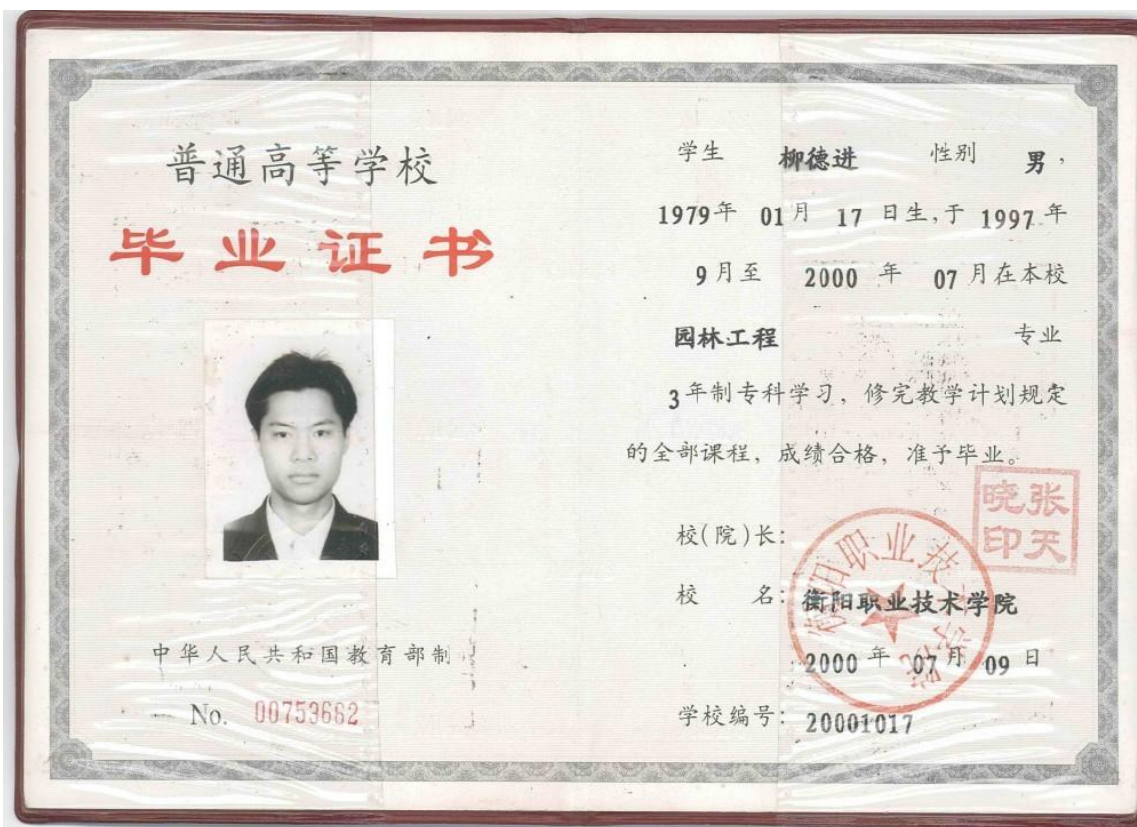 普通高等学校
毕业证书
中华人民共和国教育部制
No. 00753662
学生 柳德进 性别 男，
1979年 01月 17 日生,于 1997 年
9月至 2000 年 07 月在本校
园林工程 专业
3年制专科学习，修完教学计划规定
的全部课程，成绩合格，准予毕业。
校(院)长:
张天
晓印
校 名: 衡阳职业技术学院
衡阳职业技术学院
2000 年 07 月 09 日
学校编号: 20001017